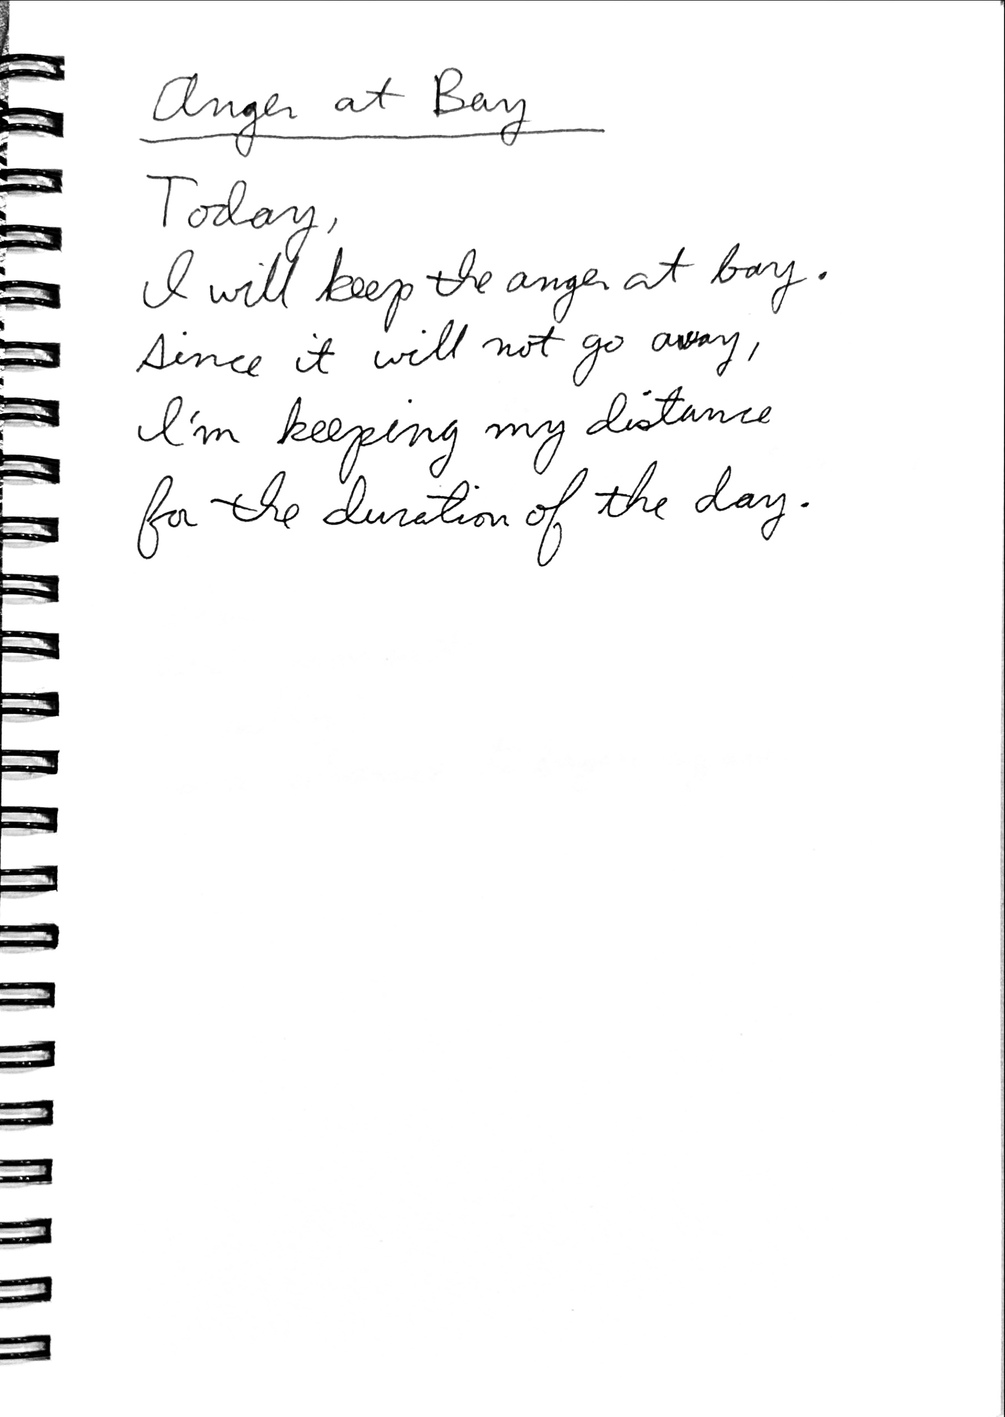 Anger at Bay
Today,
I will keep the anger at bay.
Since it will not go away,
I'm keeping my distance
for the duration of the day.